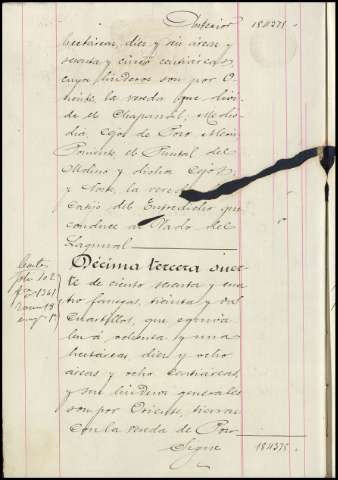 Anterior 184375
hectáreas, diez y seis áreas y
sesenta y cinco centiáreas
cuyos linderos son por O-
riente, la vereda que divi-
de el Chaparral; Medio-
día, Cejos de Poro; 
Poniente, el Puntal del
Molino y dicha
y Norte, la vereda
Casio del Entredicho que
conduce a Prado del
Lagunal
Décima tercera suer-
te de ciento sesenta y cua-
tro fanegas, treinta y dos
Cuartillos, que equiva-
len á ochenta y una
hectáreas, diez y ocho
áreas y ocho centiáreas,
y sus linderos generales
son por Oriente, tierras
con la vereda de Poro
Sigue 184375
folio 102